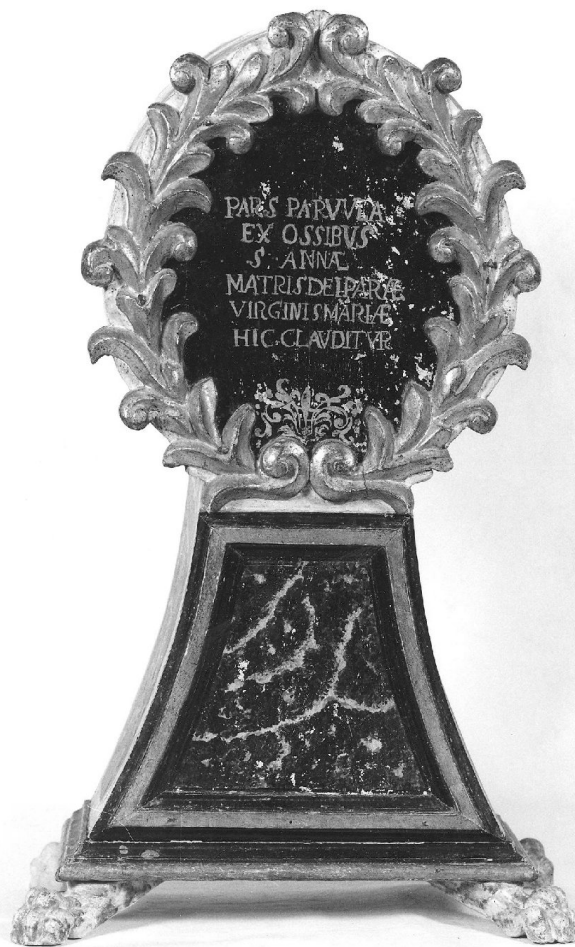 PARS PARVVLA
EX OSSIBUS
S. ANNÆ
MATRIS DEIPARÆ
VIRGINIS MARIÆ
HIC. CLAVDITVR